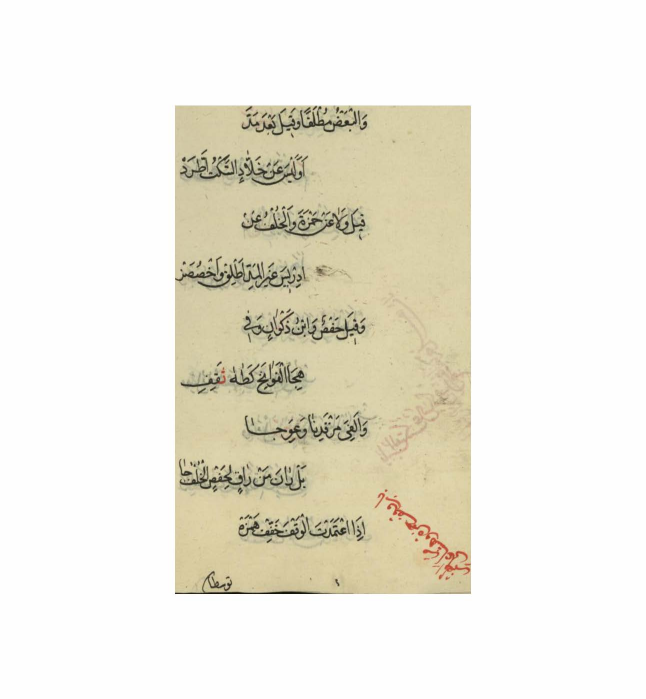 والبعض مطلقا وقيل بعد مد
أو ليس عن خلاد السكت اطرد
قيل ولا عن حمزة والخلف عن
ادريس غير المد اطلق واخصصن
وقيل حفص وابن ذكوان وفي
هجا الفواتح كطه ثقف
وألفي مرقدنا وعوجا
بل ران من راق لحفص الخلف جا
باب وقف حمزة وهشام على الهمز
إذا اعتمدت الوقف خفف همزه
توسطا